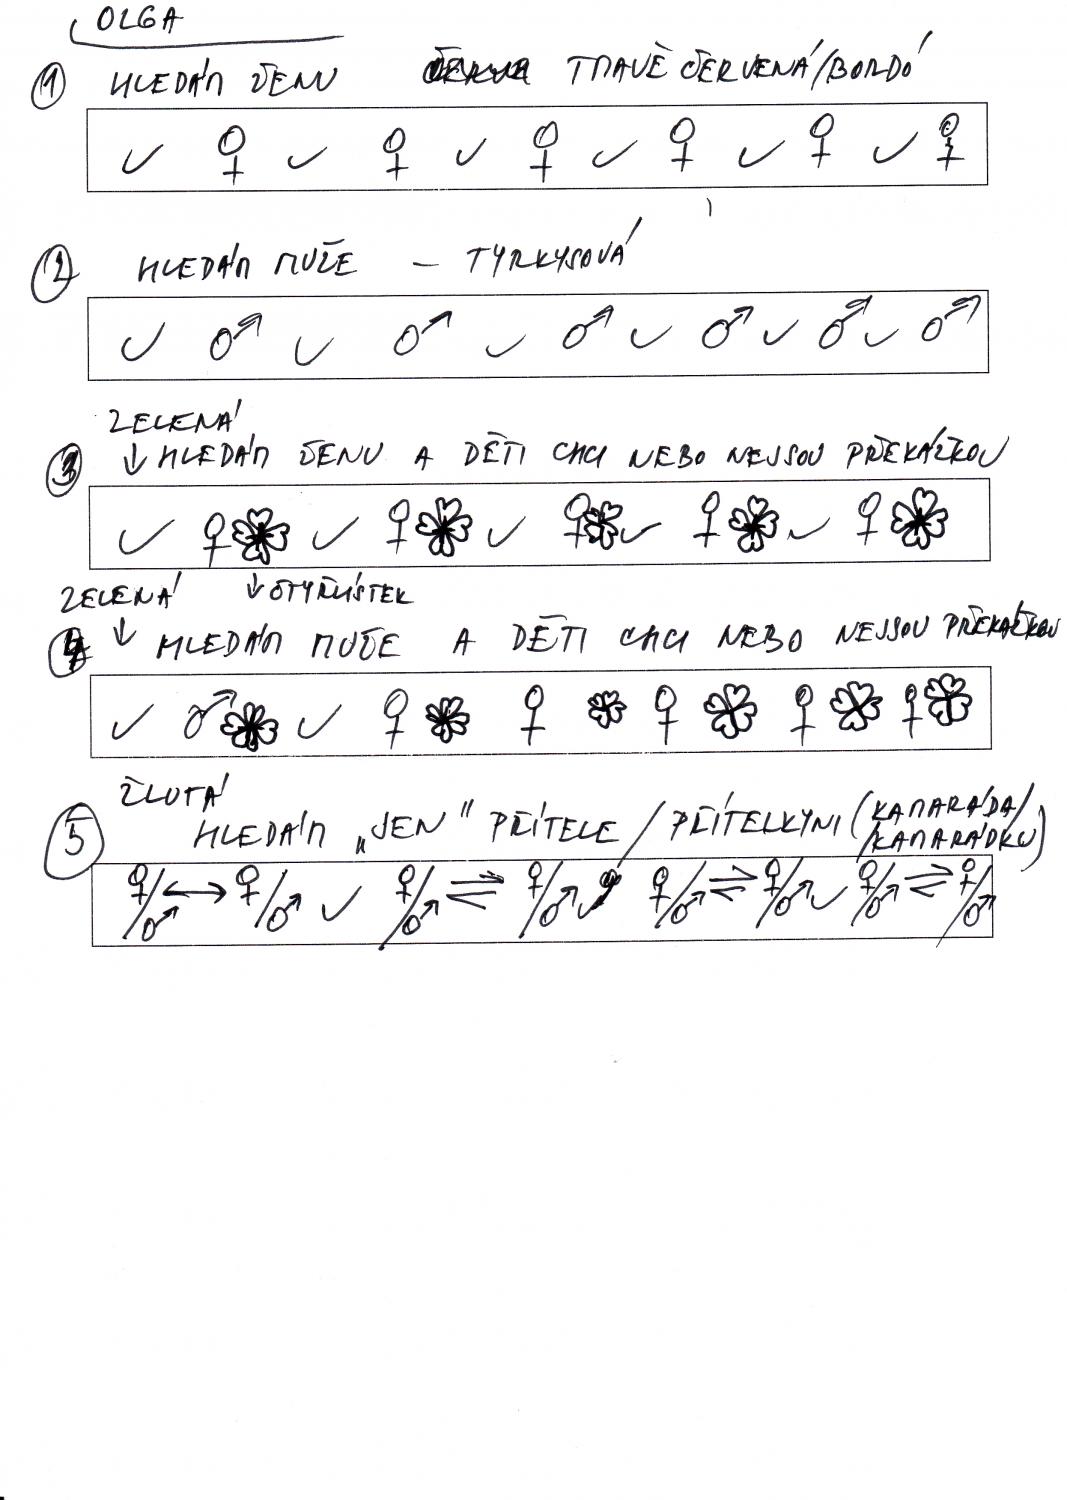 OLGA
1 HLEDÁM ŽENU TMAVĚ ČERVENÁ/BORDÓ
2 HLEDÁM MUŽE – TYRKYSOVÁ
ZELENÁ
3 ↓ HLEDÁM ŽENU A DĚTI CHCI NEBO NEJSOU PŘEKÁŽKOU
ZELENÁ ↓ ČTYŘLÍSTEK
4 ↓ HLEDÁM MUŽE A DĚTI CHCI NEBO NEJSOU PŘEKÁŽKOU
ŽLUTÁ
5 HLEDÁM „JEN" PŘÍTELE / PŘÍTELKYNI (KAMARÁDA/
/KAMARÁDKU)